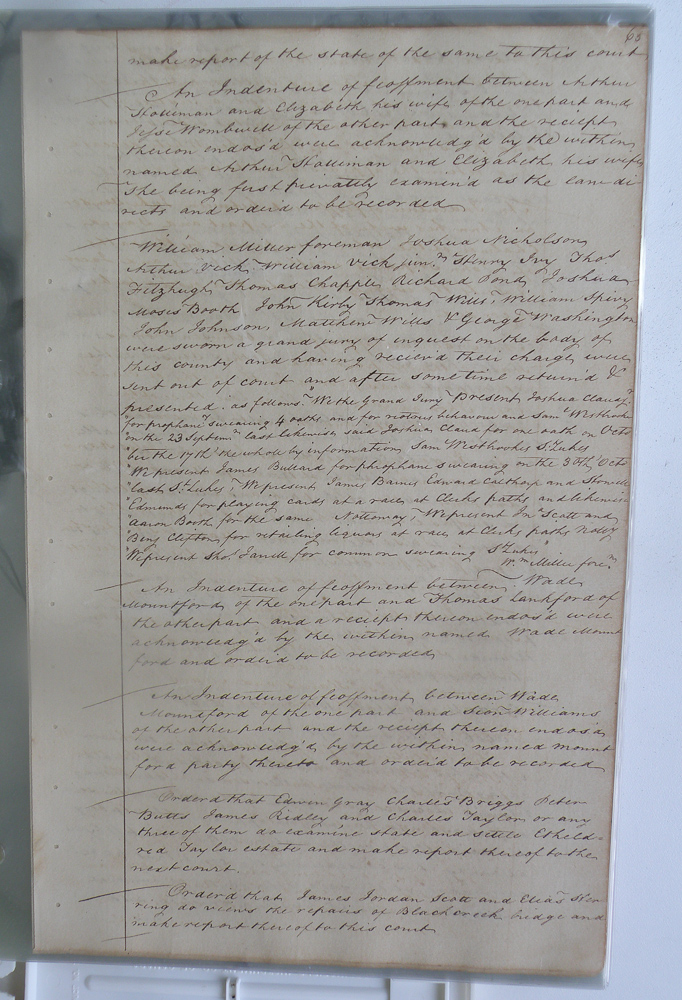 65
make report of the state of the same to this court
An Indenture of feoffment between Arthur
Holliman and Elizabeth his wife of the one part and
Jesse Wombwell of the other part and the reciept
thereon endos'd were acknowledg'd by the within
named Arthur Holliman and Elizabeth his wife
She being first privately examin'd as the law di
rects and order'd to be recorded
William Miller foreman Joshua Nicholson
Arthur Vick William Vick junr. Henry Ivy Thos
Fitzhugh Thomas Chapple Richard Pond Joshua
Moses Booth John Kirby Thomas Wills, William Spivy
John Johnson, Matthew Wills & George Washington
were sworn a grand jury of inquest on the body of
this county and having reciev'd their charge were
sent out of court and after some time return'd &
presented as follows. "We the Grand Jury Present Joshua Claud
"for prophane swearing 4 oaths and for riotous behavour and Saml Westbrook
"on the 23 Septemr last likewise said Joshua Claud for one oath on Octo
"ber the 17th the whole by information Sam Westbrookes St Lukes
"We present James Bullard for phrophane swearing on the 3th Octo
"last St Lukes, We present James Barnes Edward Calthorp and Howell
"Edmunds for playing cards at a race at Clerks paths and likewise
"Aaron Booth for the same Nottoway, We present Jno Scott and
"Benj Clifton for retailing liquors at race at Clerks paths Notty
"We present Thos. Janell for common swearing St Lukes"
Wm Miller foren
An Indenture of feoffment between Wade
Mountford of the one part and Thomas Lankford of
the other part and a reciept thereon endos'd were
acknowledg'd by the within named Wade Mount
ford and order'd to be recorded
An Indenture of feoffment between Wade
Mountford of the one part and Williams
of the other part and the reciept thereon endos'd
were acknowledg'd by the within named Mount
ford party thereto and order'd to be recorded
Order'd that Edwin Gray Charles Briggs Peter
Butts James Ridley and Charles Taylor or any
three of them do examine state and settle Etheld=
red Taylor estate and make report thereof to the
next court.
Order'd that James Jordan Scott and Elias Her
ring do view the repairs of Blackcreek bridge and
make report thereof to this court